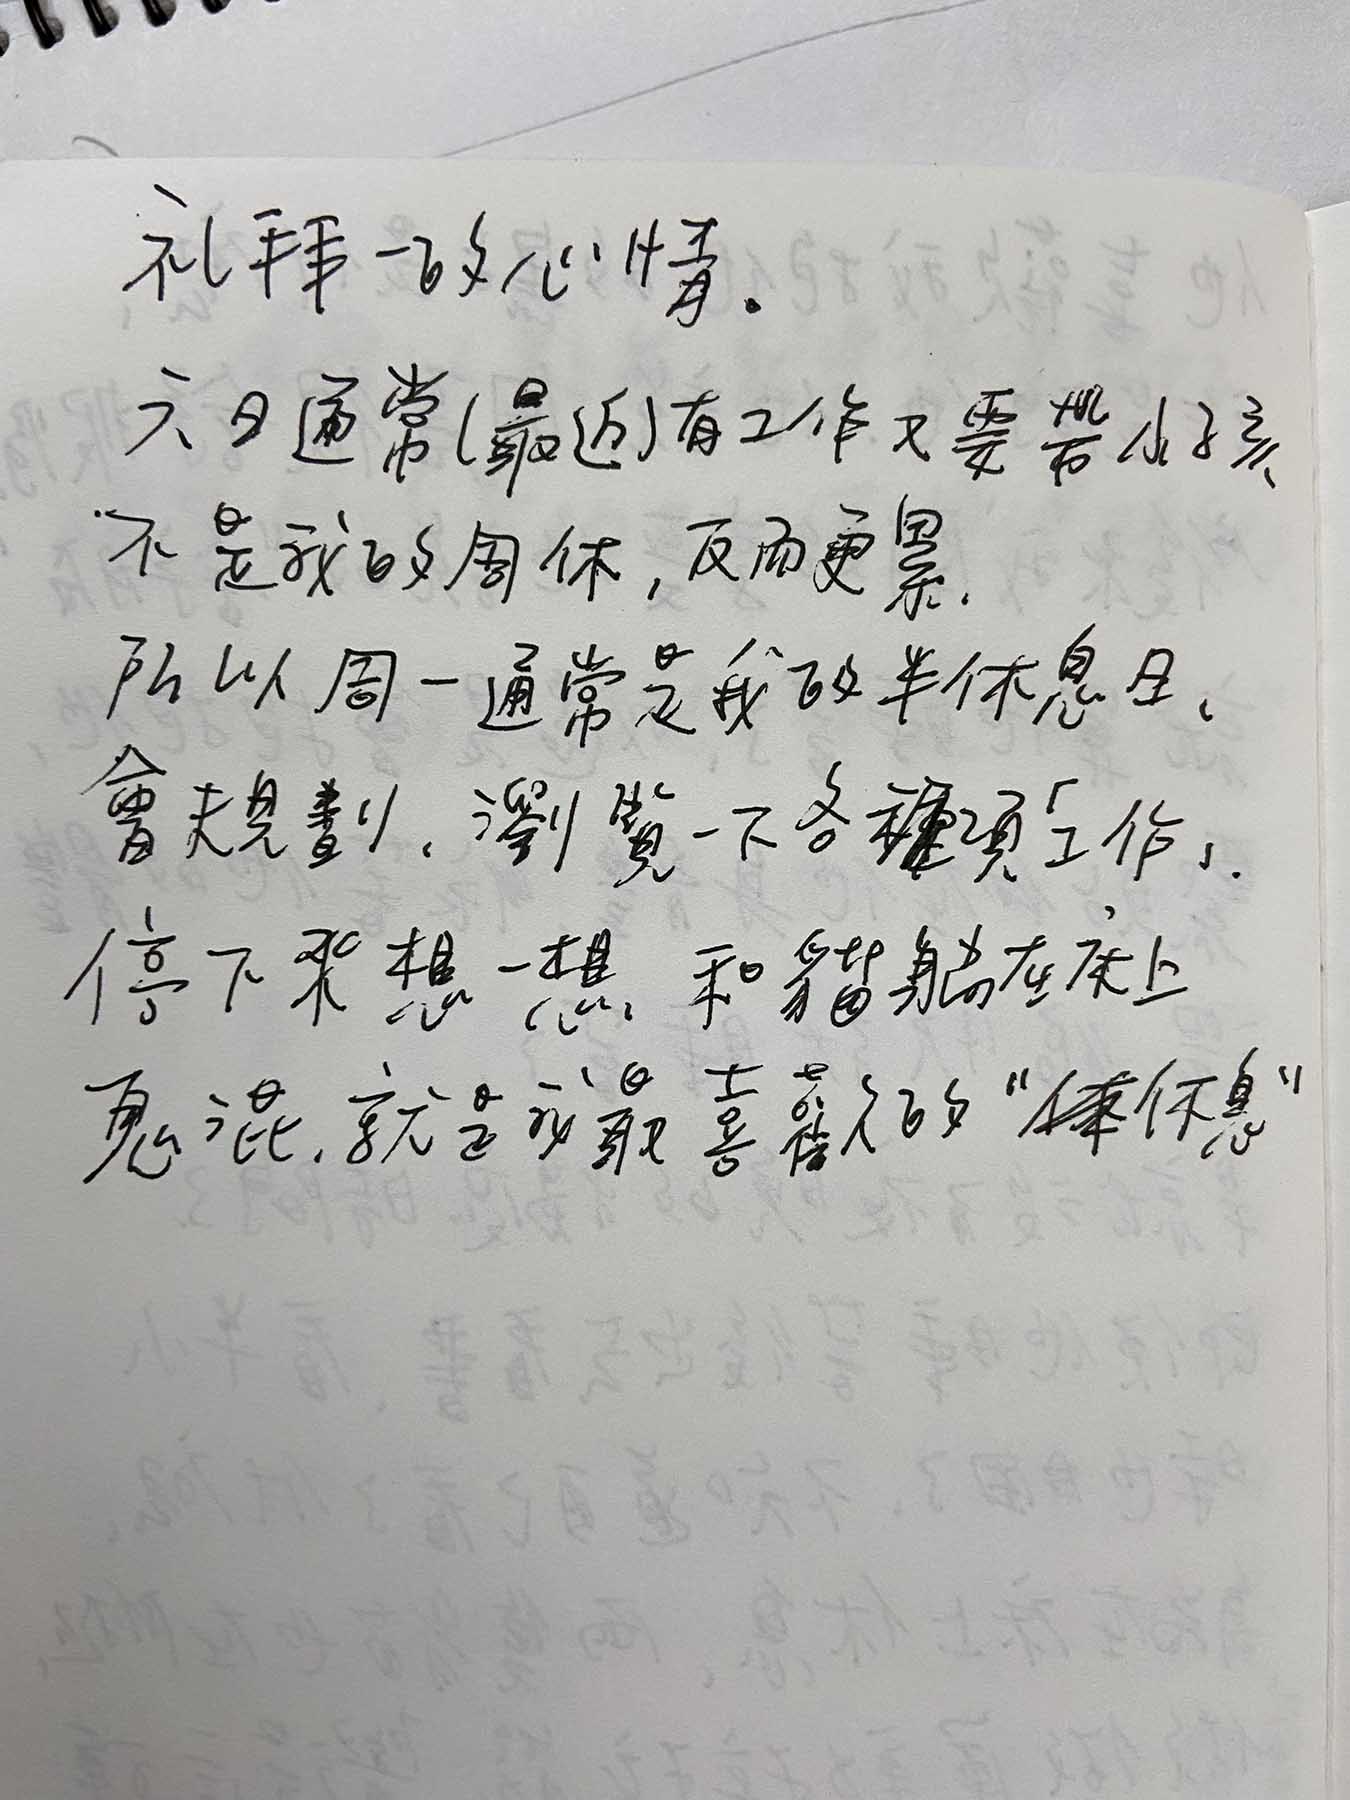 礼拜一的心情。
六日通常(最近)有工作又要帶小孩、
不是我的周休,反而更累.
所以周一通常是我的半休息日、
會規劃、瀏覽一下各種項「工作」.
停下來想一想、和貓躺在床上
鬼混、就是我最喜歡的"休息"